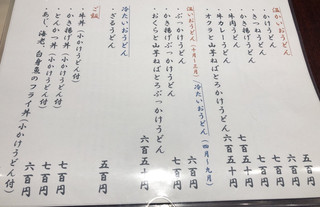 温かいおうどん
・かけうどん 五百円
・きつねうどん 六百円
・かき揚げうどん 七百円
・牛肉うどん 七百円
・牛カレーうどん 六百五十円
・オクラと山芋ねばとろうどん 六百五十円
温かいおうどん(十月〜三月)/冷たいおうどん(四月〜九月)
・ぶっかけうどん 六百円
・かき揚げぶっかけうどん 七百円
・おくらと山芋ねばとろぶっかけうどん 六百五十円
冷たいおうどん
・ざるうどん 五百円
ご飯
・牛丼(小かけうどん付) 七百円
・かき揚げ丼(小かけうどん付) 七百円
・とんかつ丼(小かけうどん付) 七百円
・あじ、海老、白身魚のフライ丼(小かけうどん付) 六百円